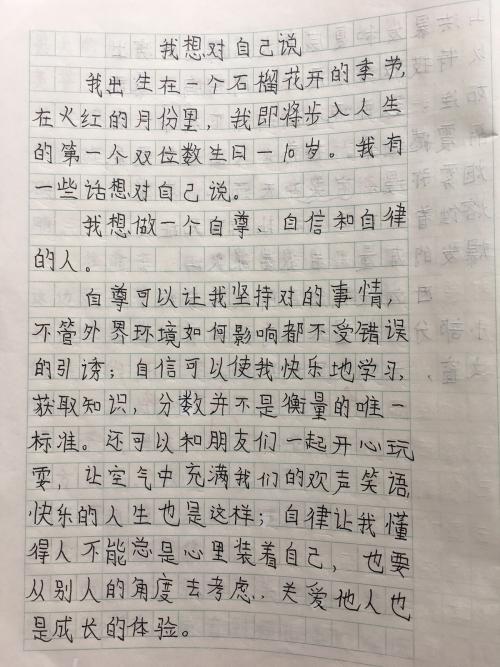 我想对自己说
我出生在一个石榴花开的季节,
在火红的月份里，我即将步入人生
的第一个双位数生日一10岁。我有
一些话想对自己说。
我想做一个自尊、自信和自律
的人。
自尊可以让我坚持对的事情，
不管外界环境如何影响都不受错误
的引诱；自信可以使我快乐地学习，
获取知识，分数并不是衡量的唯一
标准。还可以和朋友们一起开心玩
耍，让空气中充满我们的欢声笑语，
快乐的人生也是这样；自律让我懂
得人不能总是心里装着自己，也要
从别人的角度去考虑．关爱他人也
是成长的体验。